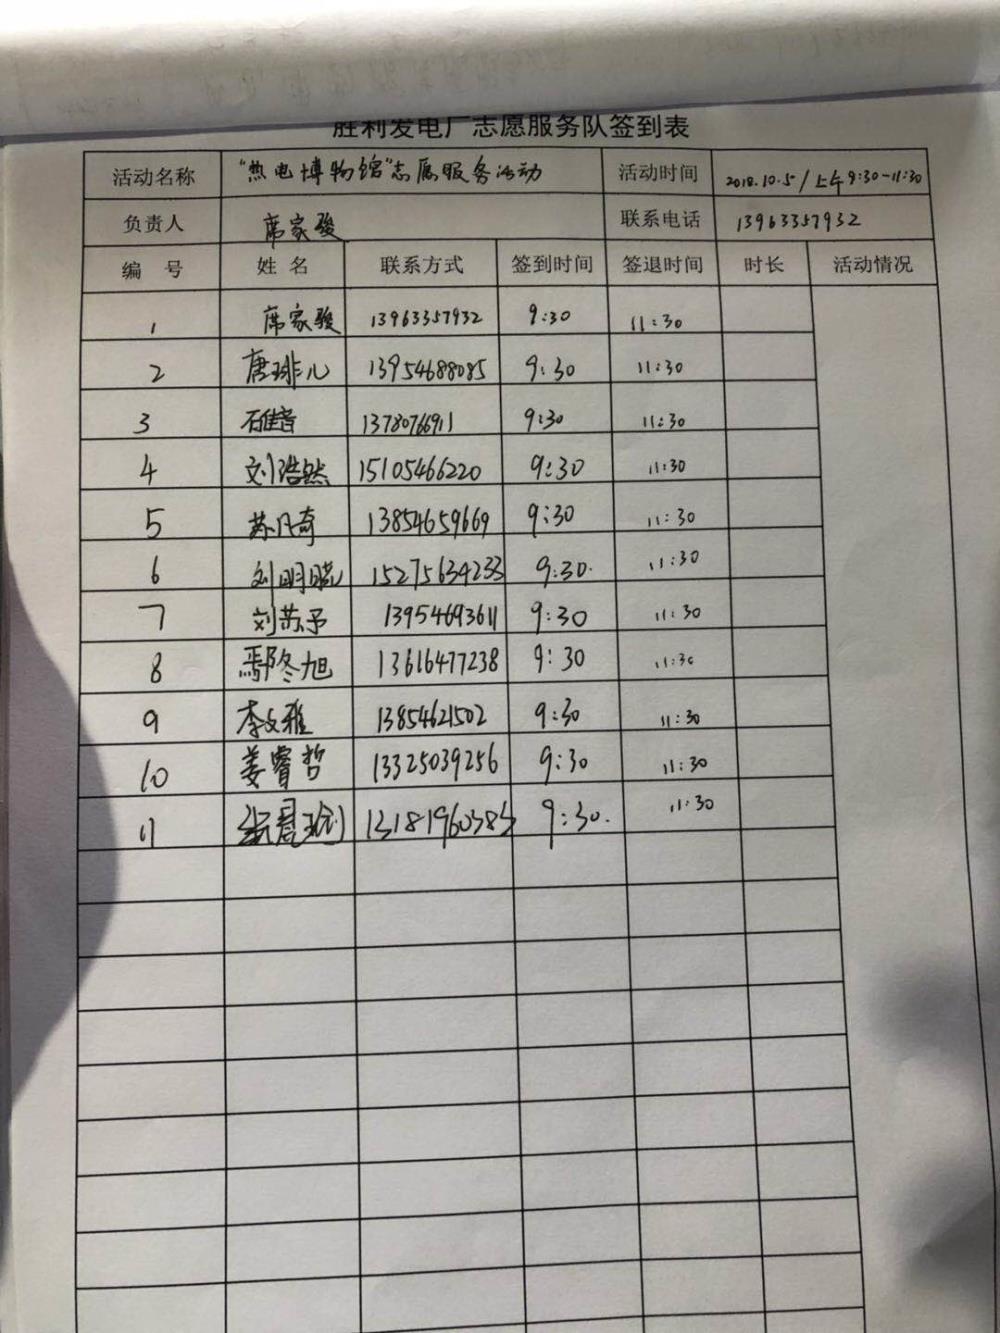 胜利发电厂志愿服务队签到表
活动名称 "热电博物馆"志愿服务活动 活动时间 2018.10.5/上午9:30-11:30
负责人 席家骏 联系电话 13963357932
编 号 姓 名 联系方式 签到时间 签退时间 时长 活动情况
1 席家骏 13963357932 9:30 11:30
2 唐琲儿 13954688085 9:30 11:30
3 9:30 11:30
4 刘浩然 15105466220 9:30 11:30
5 苏凡奇 13854659669 9:30 11:30
6 刘明晓 15275634233 9:30. 11:30
7 刘芸予 13954693611 9:30 11:30
8 鄢冬旭 13616477238 9:30 11:30
9 李文雅 13854621502 9:30 11:30
10 姜睿哲 13325039256 9:30 11:30
11 13181960383 9:30. 11:30